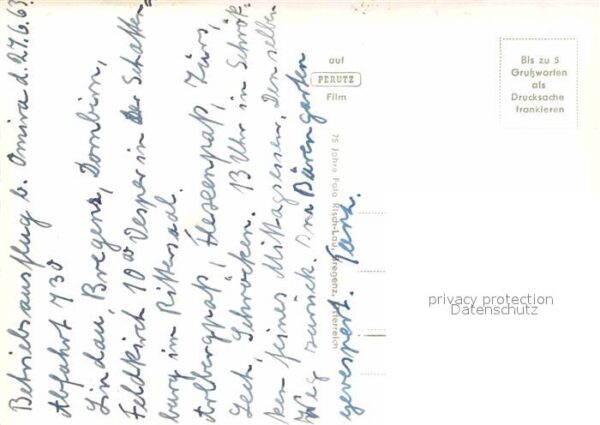 Betriebsausflug b. Omira d. 27.6.63
Abfahrt 7 30
Lindau, Bregenz, Dornbirn,
Feldkirch 10 00 Vesper in der Schatten=
burg im Rittersaal.
Arlbergpaß, Flexenpaß, Zürs,
Lech, Schröcken. 13 Uhr in Schrök=
ken feines Mittagessen. Den selben
Weg zurück. Im Bärengarten
gevespert. Tanz.
auf
PERUTZ
Film
75 Jahre Foto Risch-Lau, Bregenz, Österreich
Bis zu 5
Grußworten
als
Drucksache
frankieren
privacy protection
Datenschutz